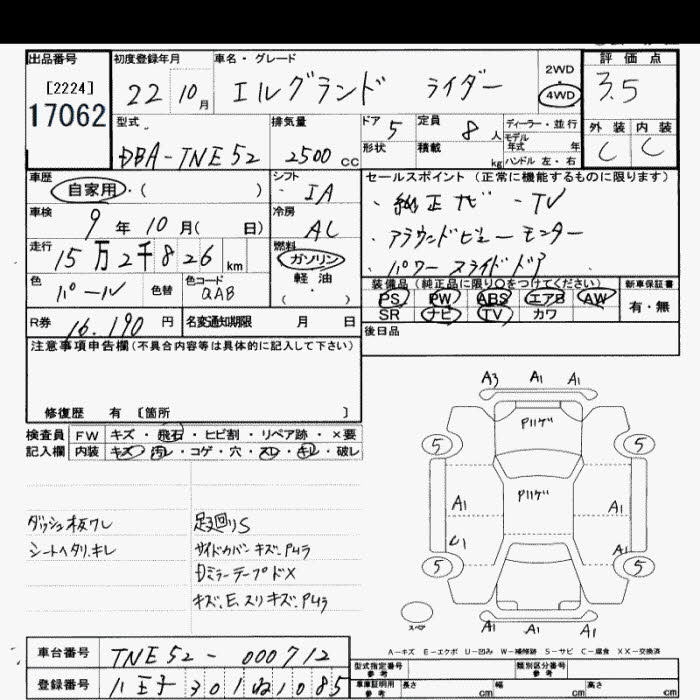 出品番号 初度登録年月 車名・グレード 2WD 評価点
[2224] 22 10月 エルグランド ライダー 4WD 3.5
17062
型式 排気量 ドア 5 定員 8人 ディーラー・並行 外装 内装
DBA-TNE52 2500cc 形状 積載 kg モデル年式 年 C C
ハンドル 左・右
車歴 シフト セールスポイント (正常に機能するものに限ります)
自家用・( ) IA ・純正ナビ-TV
車検 冷房 ・アラウンドビューモニター
9年10月( 日) AC ・パワースライドドア
走行 燃料
15万2千826km ガソリン
軽油
・( )
色 パール 色替 色コード QAB
装備品 (純正品に限り○をつけてください) 新車保証書
PS PW ABS エアB AW 有・無
SR ナビ TV カワ
R券 16.190円 名変通知期限 月 日
後日品
注意事項申告欄(不具合内容等は具体的に記入して下さい)
修復歴 有 [箇所 ]
検査員 FW キズ・飛石・ヒビ割・リペア跡・×要
記入欄 内装 キズ・汚レ・コゲ・穴・スレ・キレ・破レ
ダッシュ板ワレ 足廻りS
シートヘタリ.キレ サイドカバンキズ.Pムラ
DミラーテープドX
キズ.E.スリキズ.Pムラ
A3 A1 A1
Pハゲ
5 5
Pハゲ
A1 A1
U1 A1
5 5
スペア
A1 A1 A1
A-キズ E-エクボ U-凹み W-補修跡 S-サビ C-腐食 XX-交換済
車台番号 TNE52-000712
型式指定番号 参考 類別区分番号 参考
登録番号 八王子 301 ぬ1085
車庫証明用 参考 長さ cm 幅 cm 高さ cm